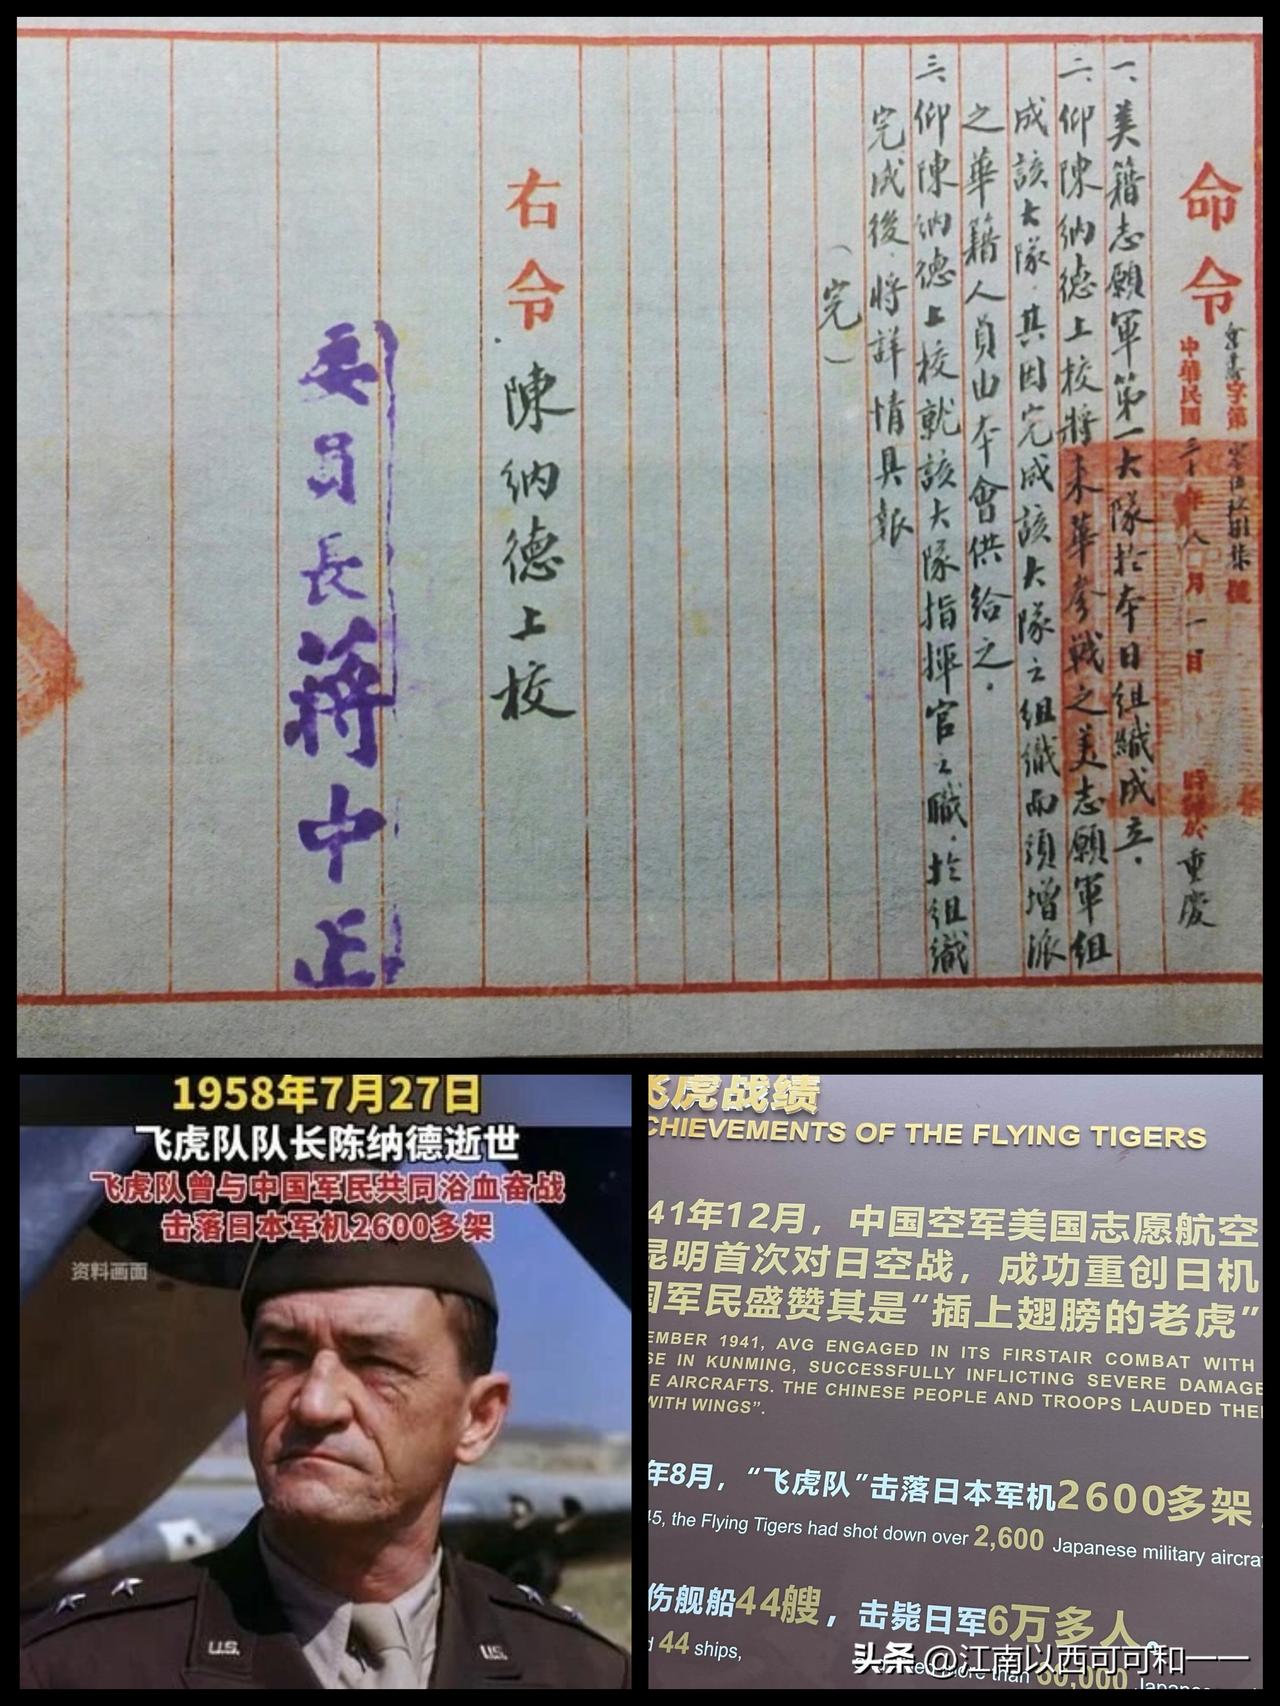 命令
中華民國三十年八月一日
時於重慶
一、美籍志願軍第一大隊於本日組織成立.
二、仰陳納德上校將來華參戰之美志願軍組
成該大隊.其因完成該大隊之組織而須增派
之華籍人員由本會供給之.
三、仰陳納德上校就該大隊指揮官之職.於組織
完成後.將詳情具報
(完)
右令
陳納德上校
委員長蔣中正
1958年7月27日
飞虎队队长陈纳德逝世
飞虎队曾与中国军民共同浴血奋战
击落日本军机2600多架
资料画面
U.S.
U.S.
飞虎战绩
CHIEVEMENTS OF THE FLYING TIGERS
41年12月，中国空军美国志愿航空
昆明首次对日空战，成功重创日机
国军民盛赞其是“插上翅膀的老虎”
EMBER 1941, AVG ENGAGED IN ITS FIRSTAIR COMBAT WITH
SE IN KUNMING, SUCCESSFULLY INFLICTING SEVERE DAMAGE
E AIRCRAFTS. THE CHINESE PEOPLE AND TROOPS LAUDED THE
WITH WINGS”.
年8月，“飞虎队”击落日本军机2600多架
45, the Flying Tigers had shot down over 2,600 Japanese military aircra
伤舰船44艘，击毙日军6万多人。
d 44 ships,
more than 60,000 Japanes
头条 @江南以西可可和一一